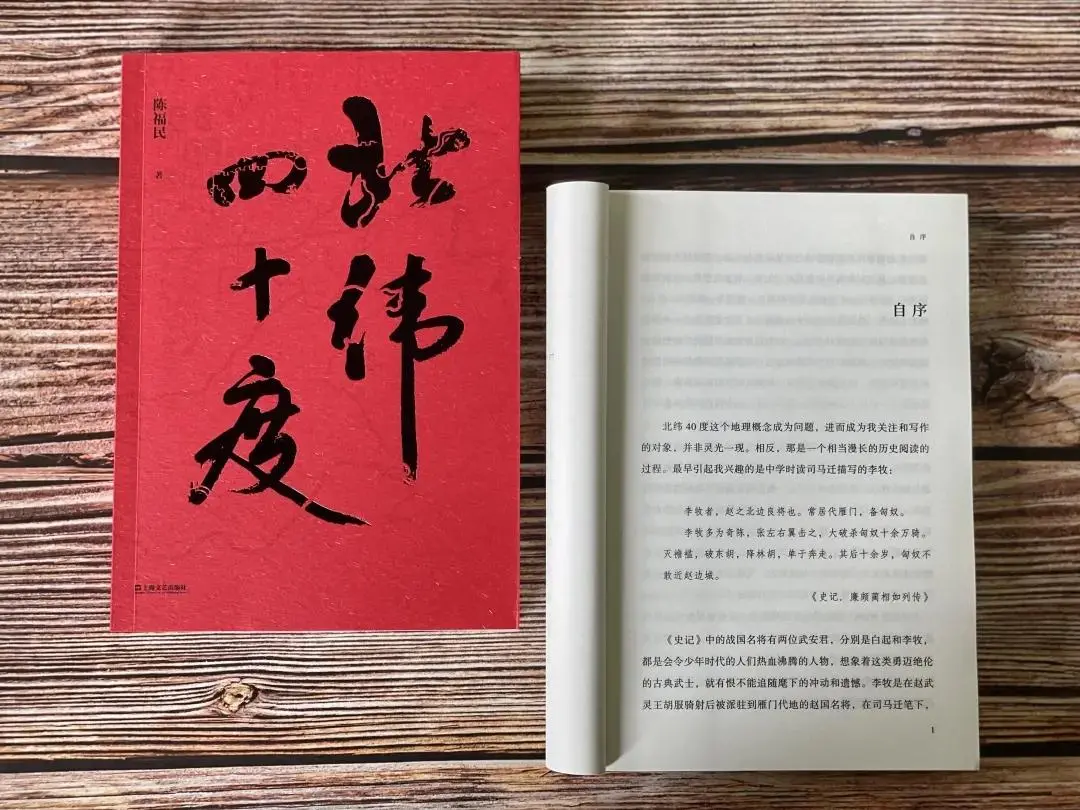 陈福民
著
北纬
四十度
上海文艺出版社
自序
自序
北纬 40 度这个地理概念成为问题，进而成为我关注和写作
的对象，并非灵光一现。相反，那是一个相当漫长的历史阅读的
过程。最早引起我兴趣的是中学时读司马迁描写的李牧：
李牧者，赵之北边良将也。常居代雁门，备匈奴。
李牧多为奇陈，张左右翼击之，大破杀匈奴十余万骑。
灭襜褴，破东胡，降林胡，单于奔走。其后十余岁，匈奴不
敢近赵边城。
《史记．廉颇蔺相如列传》
《史记》中的战国名将有两位武安君，分别是白起和李牧，
都是会令少年时代的人们热血沸腾的人物，想象着这类勇迈绝伦
的古典武士，就有恨不能追随麾下的冲动和遗憾。李牧是在赵武
灵王胡服骑射后被派驻到雁门代地的赵国名将，在司马迁笔下，
1